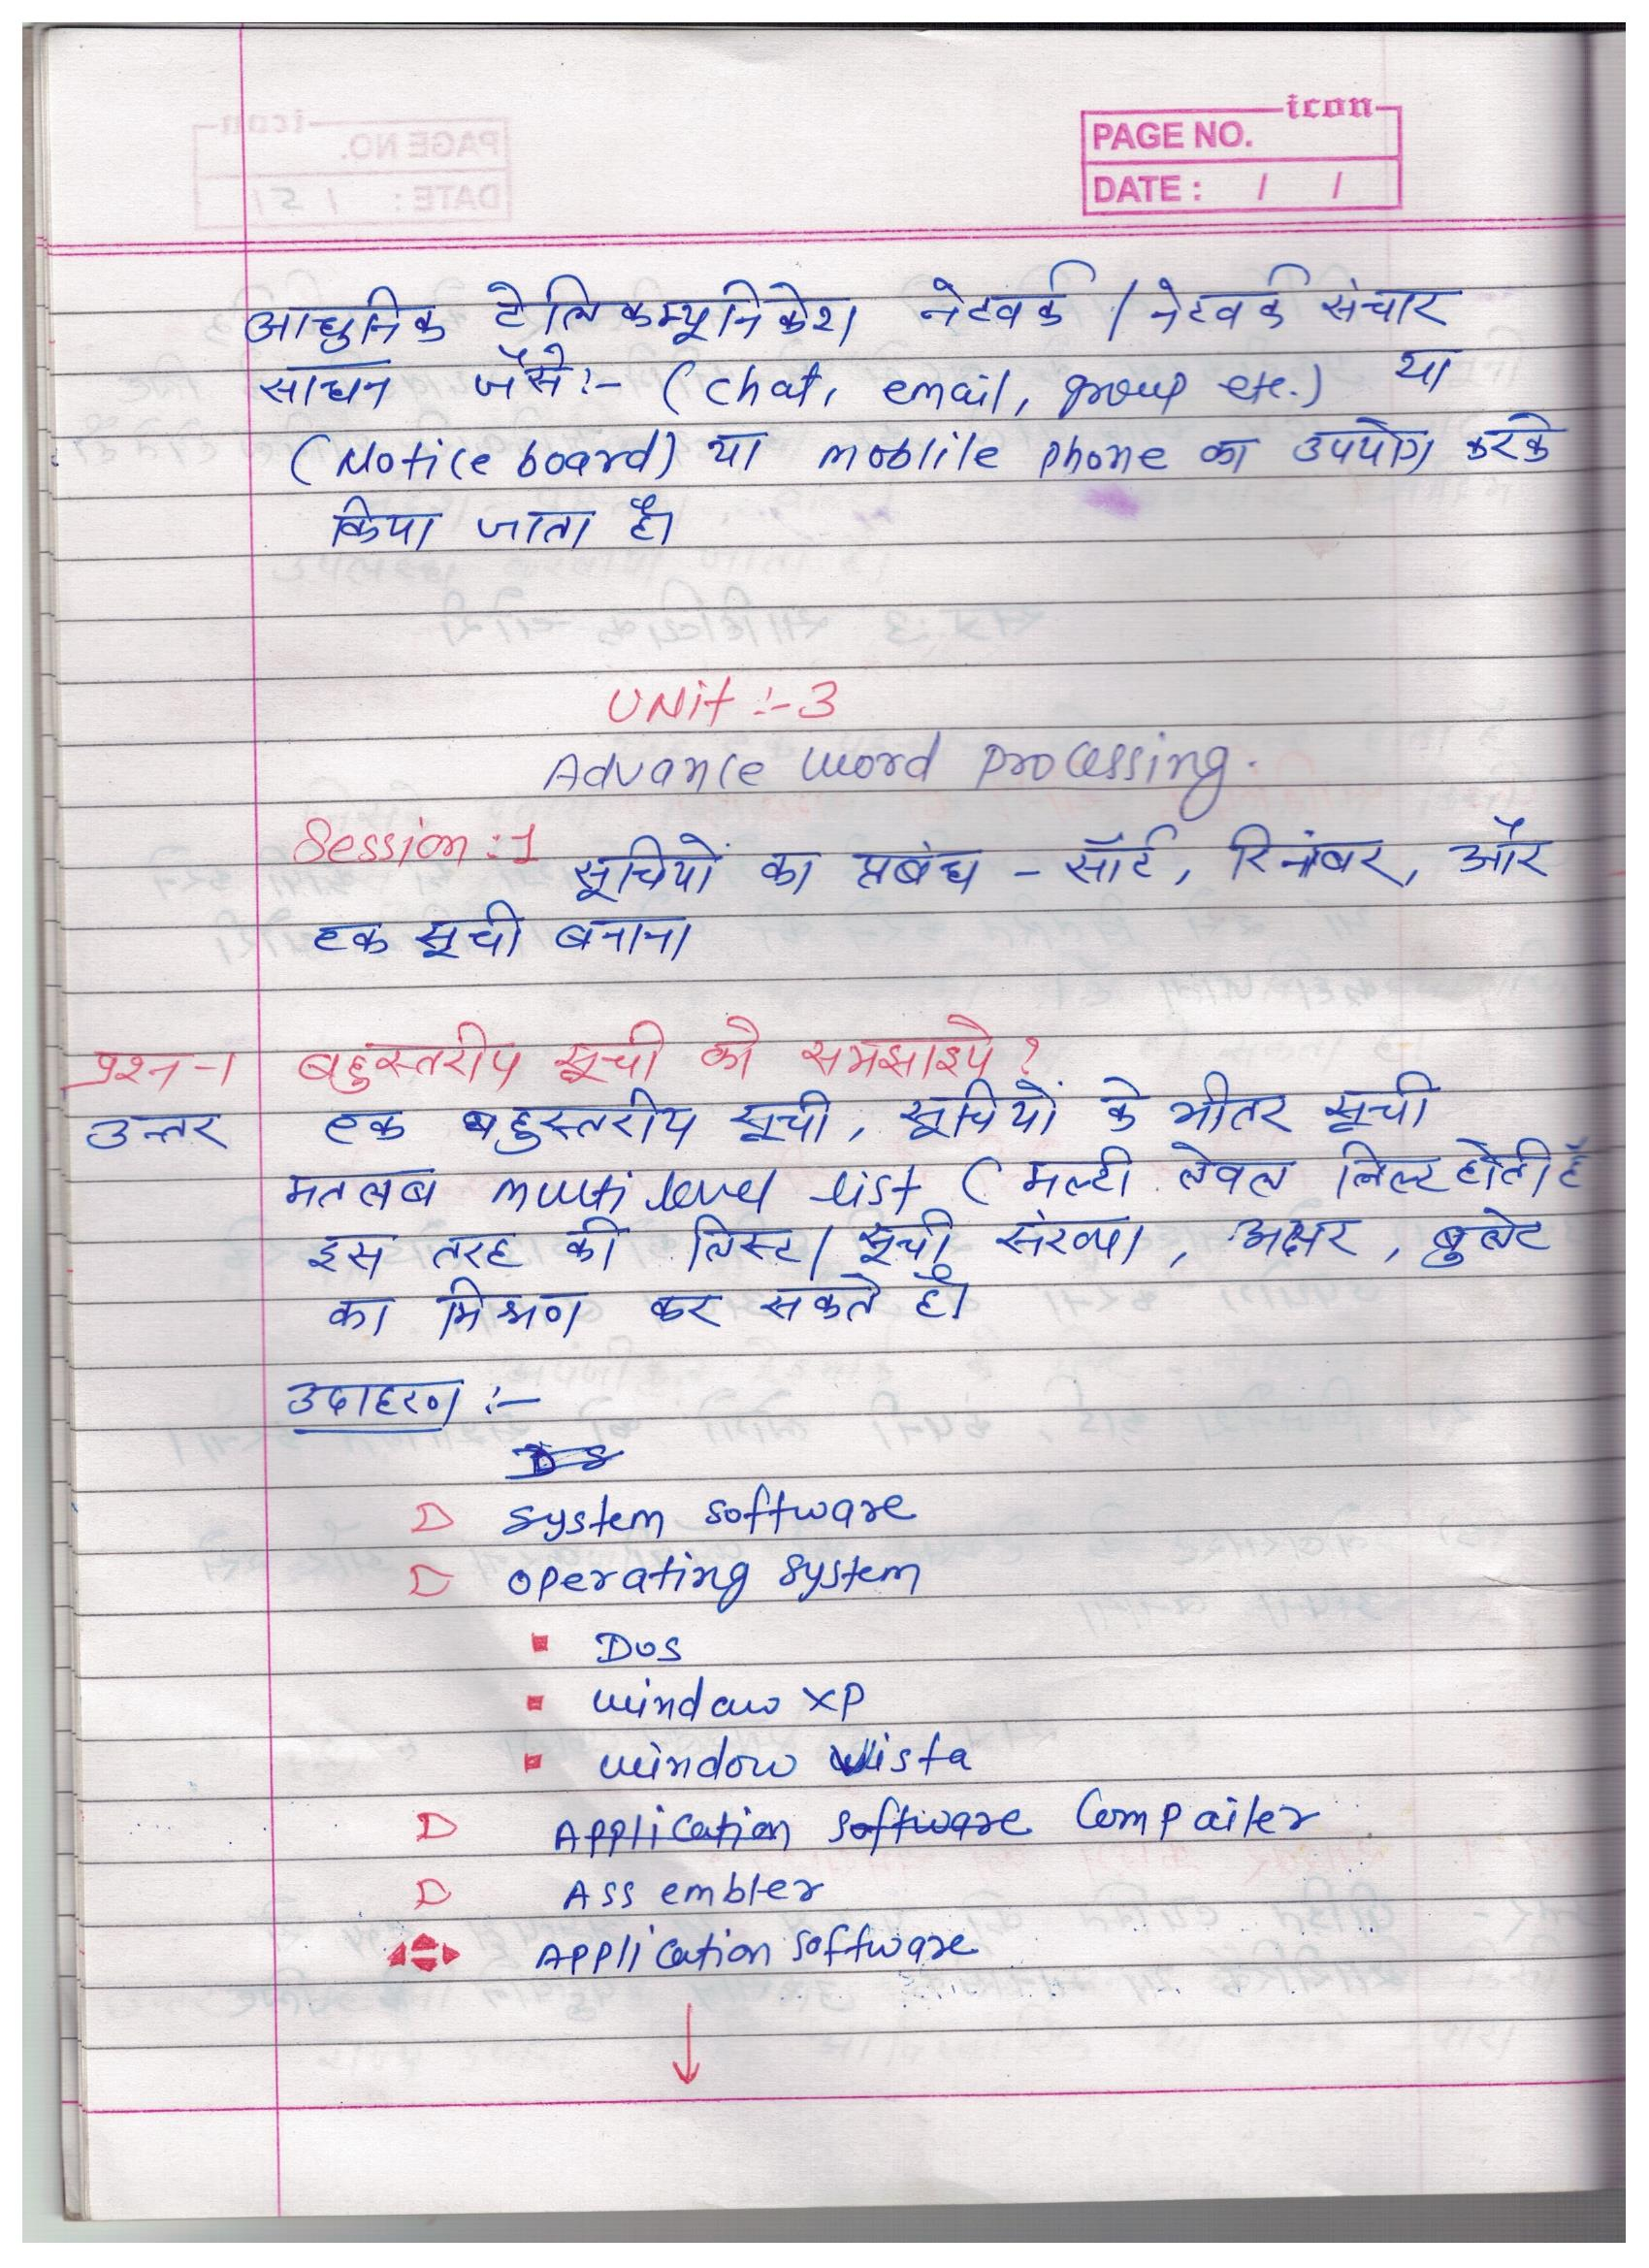 icon
PAGE NO.
DATE : / /
आधुनिक टेलिकम्यूनिकेशन नेटवर्क / नेटवर्क संचार
साधन जैसे:- (chat, email, group etc.) या
(Notice board) या moblile phone का उपयोग करके
किया जाता है।
UNit :- 3
Advance word processing.
Session : 1
सूचियों का प्रबंध - सॉर्ट, रिनंबर, और
एक सूची बनाना
प्रश्न -1 बहुस्तरीय सूची को समझाइये ?
उत्तर एक बहुस्तरीय सूची, सूचियों के भीतर सूची
मतलब multi level list ( मल्टी लेवल लिस्ट होती है
इस तरह की लिस्ट / सूची संख्या, अक्षर, बुलेट
का मिश्रण कर सकते है।
उदाहरण :-
System Software
operating System
Dos
window XP
window Vista
Application Software Compailer
Assembler
Application Software